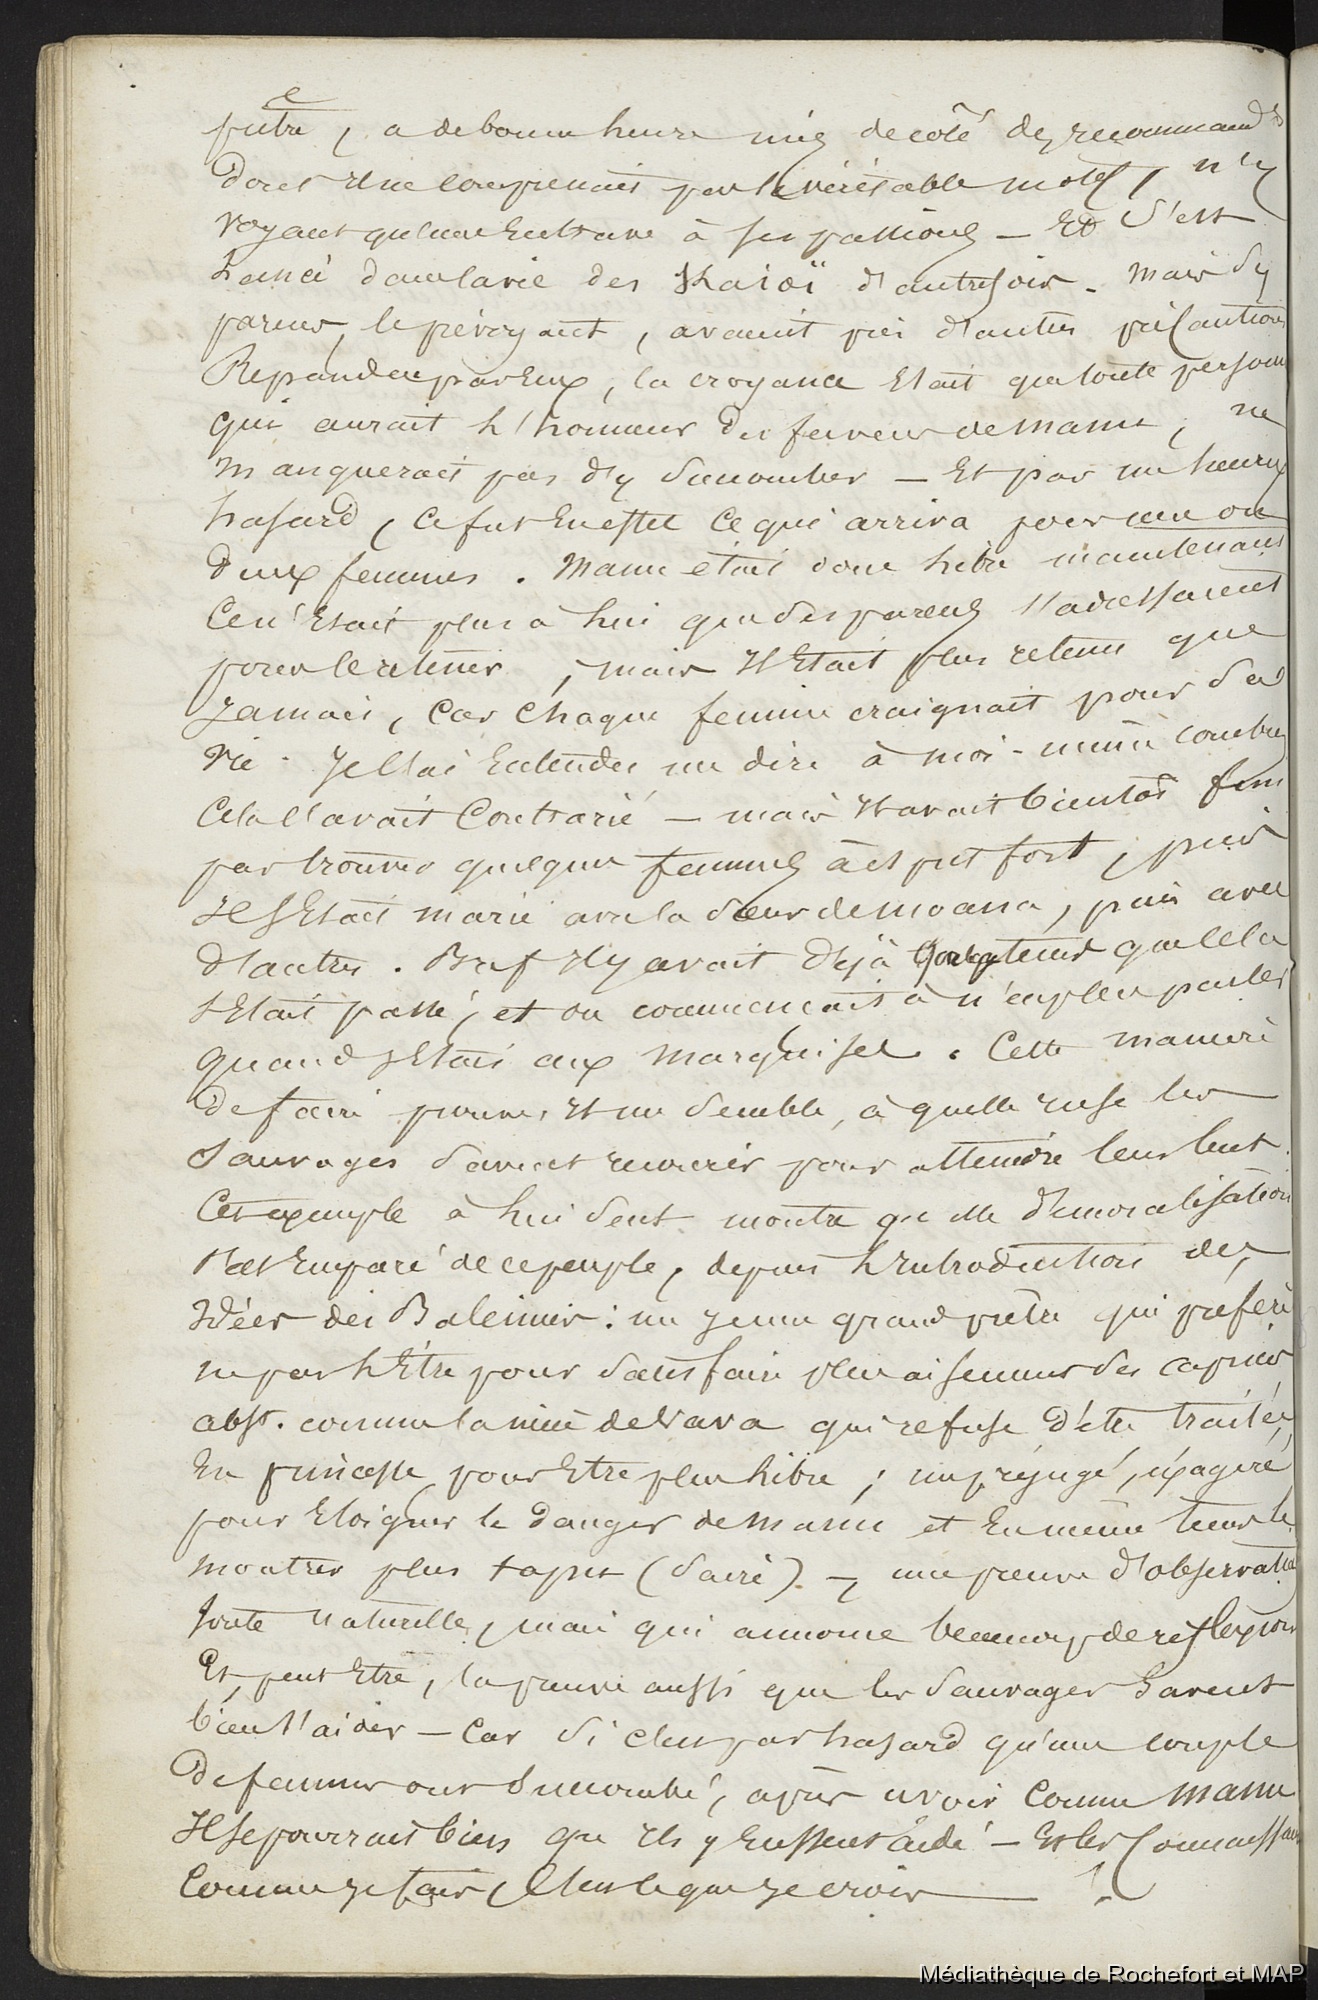 prêtre, a de bonne heure mis de côté des recommandns
dont il ne comprenait pas le véritable motif, n'y
voyant qu'une entrave à ses passions — Et s'est
lancé dans la vie des Kaïoï d'autrefois. Mais ses
parens, le prévoyant, avaient pris d'autres précautions
Répandue par eux, la croyance était que toute personne
qui aurait l'honneur des faveurs de Manu, ne
manquerait pas d'y succomber — Et par un heureux
hasard, ce fut en effet ce qui arriva pour une ou
deux femmes. Manu était donc libre maintenant
Ce n'était plus à lui que ses parens s'adressaient
pour le retenir, mais il était plus retenu que
jamais, car chaque femme craignait pour sa
vie. Je l'ai entendu me dire à moi-même combien
cela l'avait contrarié — mais il avait bientôt fini
par trouver quelques femmes à esprit fort, puis
il s'était marié avec la sœur de Moana, puis avec
d'autres. Bref il y avait déjà longtems que cela
s'était passé, et on commencait à n'en plus parler
quand j'étais aux Marquises. Cette manière
de faire prouve, il me semble, à quelle ruse les
Sauvages savent recourir pour atteindre leur but.
Cet exemple à lui seul montre quelle démoralisation
s'est emparé de ce peuple, depuis l'introduction des
idées des Baleiniers : un jeune grand prêtre qui préfère
ne pas l'être pour satisfaire plus aisément ses caprices
abst. comme la nièce de Vava qui refuse d'être traitée
en princesse pour être plus libre ; un préjugé, exagéré
pour éloigner le danger de Manu et en même tems le
montrer plus tapu (sacré) — une preuve d'observation
toute naturelle, mais qui annonce beaucoup de réflexion
Et, peut être, la preuve aussi que les Sauvages savent
bien s'aider — Car si c'est par hasard qu'une couple
de femmes ont succombé, après avoir connu Manu
il se pourrait bien qu'ils y eussent aidé — Et les connaissant
comme je fais, c'est ce que je crois — !.
Médiathèque de Rochefort et MAP